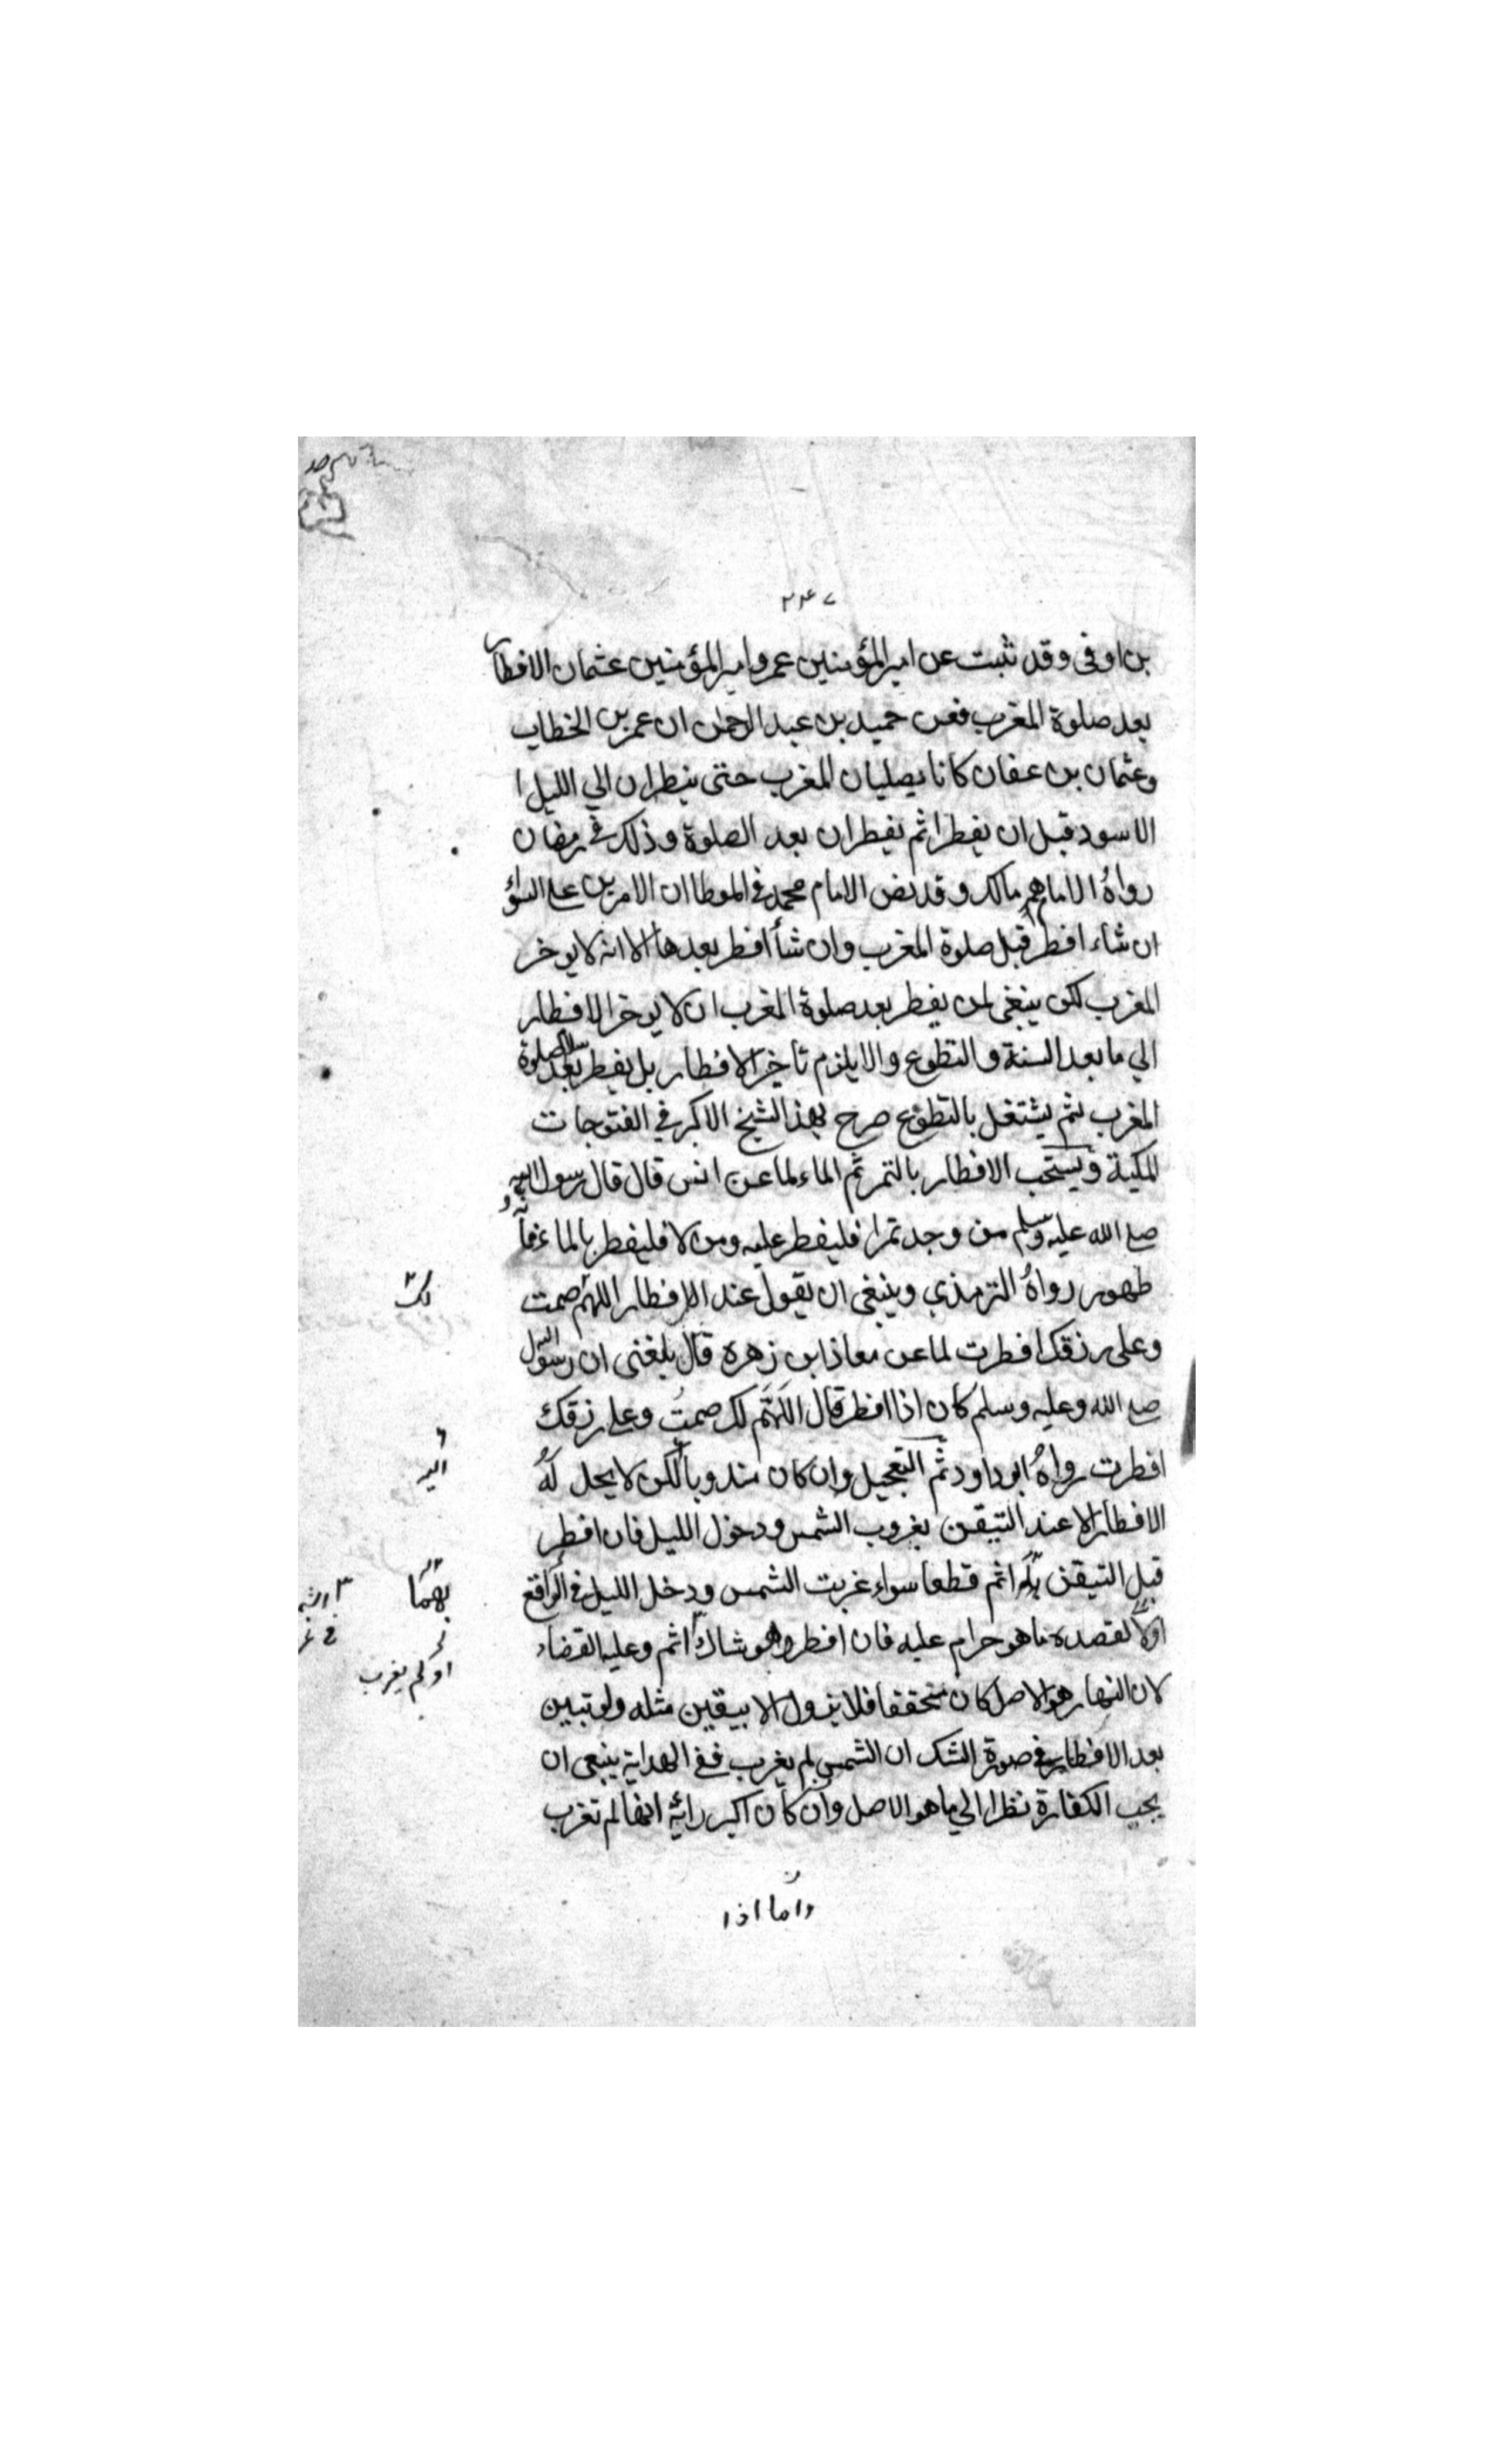 ٢٤٧
بن اوفى وقد ثبت عن امير المؤمنين عمر وامير المؤمنين عثمان الافطار
بعد صلوة المغرب فعن حميد بن عبد الرحمن ان عمر بن الخطاب
وعثمان بن عفان كانا يصليان المغرب حتى ينظران الي الليل ا
الاسود قبل ان يفطرا ثم يفطران بعد الصلوة وذلك في رمضان
رواهُ الامام مالك وقد نص الامام محمد في الموطا ان الامرين على السواء
ان شاء افطر قبل صلوة المغرب وان شأ افطر بعدها الا انه لا يوخر
المغرب لكن ينبغي لمن يفطر بعد صلوة المغرب ان لا يوخر الافطار
الي ما بعد السنة والتطوع والا يلزم تأخير الافطار بل يفطر بعد صلوة
المغرب ثم يشتغل بالتطوع صرح بهذا الشيخ الاكبر في الفتوحات
المكية ويستحب الافطار بالتمر ثم الماء لما عن انس قال قال رسول الله
صلى الله عليه وسلم من وجد تمرا فليفطر عليه ومن لا فليفطر بالماء فأنه
طهور رواهُ الترمذي وينبغي ان يقول عند الافطار اللهم صمت
لك
وعلى رزقك افطرت لما عن معاذ ابن زهرة قال بلغني ان رسول الله
صلى الله وعليه وسلم كان اذا افطر قال اللهم لك صمتُ وعلى رزقك
افطرت رواهُ ابو داود ثم التعجيل وان كان مندوبا لكن لا يحل لهُ
الافطار الا عند التيقن بغروب الشمس ودخول الليل فان افطر
قبل التيقن اثم قطعا سواء غربت الشمس ودخل الليل في الواقع
بهما
اولا لقصده ما هو حرام عليه فان افطر وهو شاك اثم وعليه القضاء
او لم يغرب
لان النهار هو الاصل كان متحققا فلا يزول الا بيقين مثله ولو تبين
بعد الافطار في صورة الشك ان الشمس لم يغرب ففي الهداية ينبغي ان
يجب الكفارة نظرا الي ما هو الاصل وان كان اكبر رائية انها لم تغرب
واما اذا